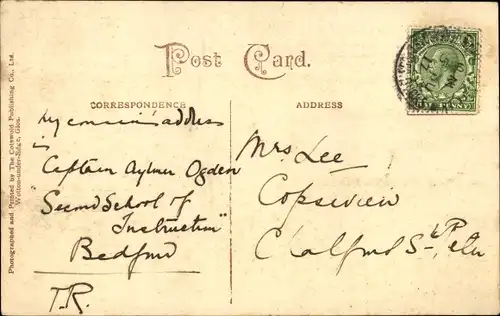 Post Card.
CORRESPONDENCE
ADDRESS
My cousin's address
is
Captain Aylmer Ogden
"Second School of
Instruction"
Bedford
T.R.
Mrs Lee
Copseview
Chalford
HALF PENNY
Photographed and Printed by The Cotswold Publishing Co., Ltd.
Wotton-under-Edge, Glos.